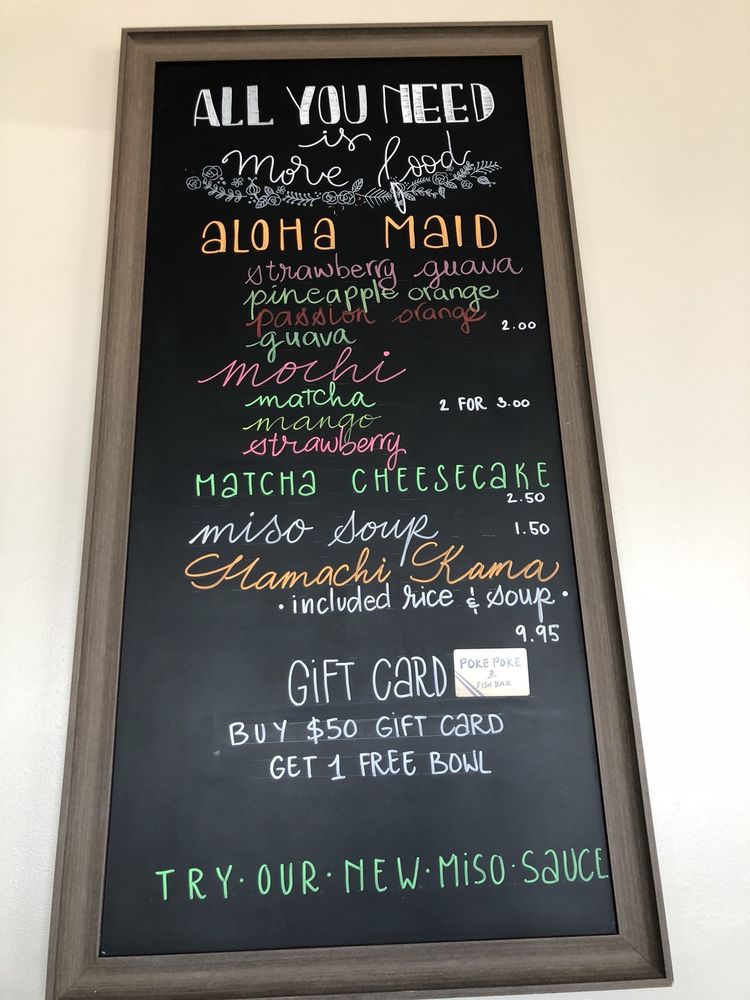 ALL YOU NEED
is
more food
ALOHA MAID
strawberry guava
pineapple orange
passion orange
guava 2.00
mochi
matcha 2 FOR 3.00
mango
strawberry
MATCHA CHEESECAKE
2.50
miso soup 1.50
Hamachi Kama
·included rice & soup·
9.95
GIFT CARD
POKE POKE
FISH BAR
BUY $50 GIFT CARD
GET 1 FREE BOWL
TRY·OUR·NEW·MISO·SAUCE